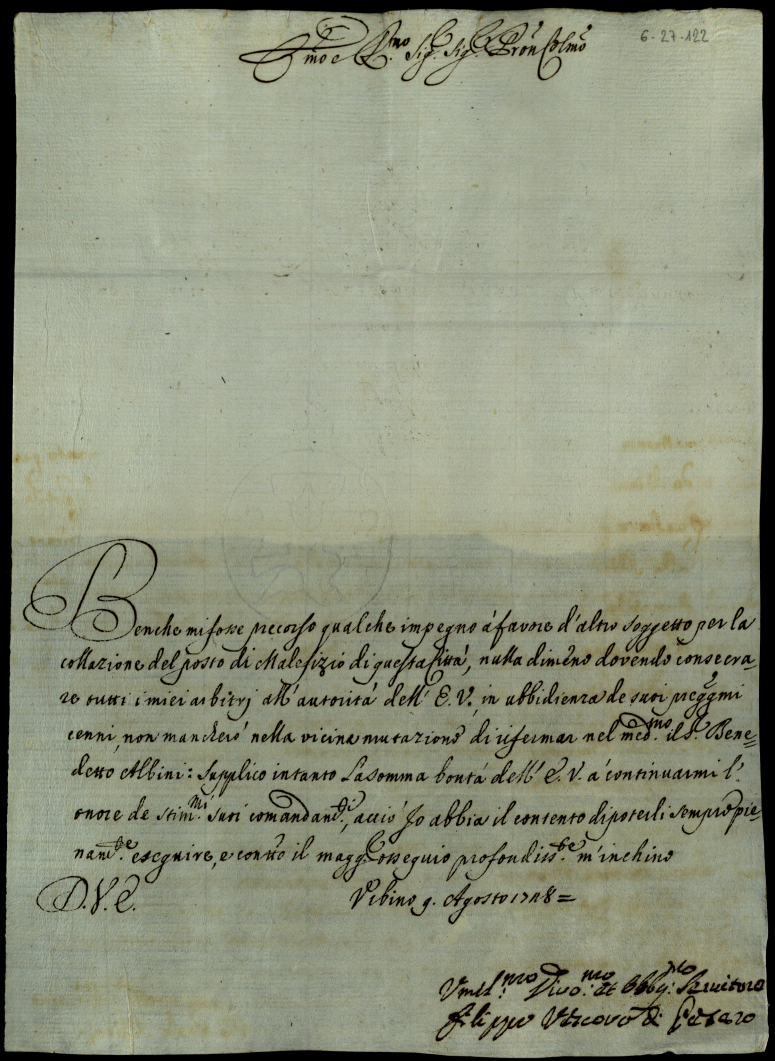 Emo e Rmo Sig. Sig. Pron Colmo
6-27-122
Benche mi fosse precorso qualche impegno à favore d'altro soggetto per la
collazione del posto di Malefizio di questa Città, nulla dimeno dovendo consecra-
re tutti i miei arbitrj all'autorità dell'E.V., in ubbidienza de suoi pregmi
cenni, non mancherò nella vicina mutazione di rifermar nel medmo il Sr. Bene-
detto Albini: Supplico intanto La somma bontà dell'E.V. à continuarmi l'
onore de stimmi suoi comandamti, acciò Io abbia il contento di poterli sempre pie-
namte eseguire, e con tto il magg. ossequio profondisste m'inchino
D.V.E.
Vrbino 9. Agosto 1718=
Vmilmo Divomo et Obbgmo Servitore
Filippo Vescovo di Pesaro